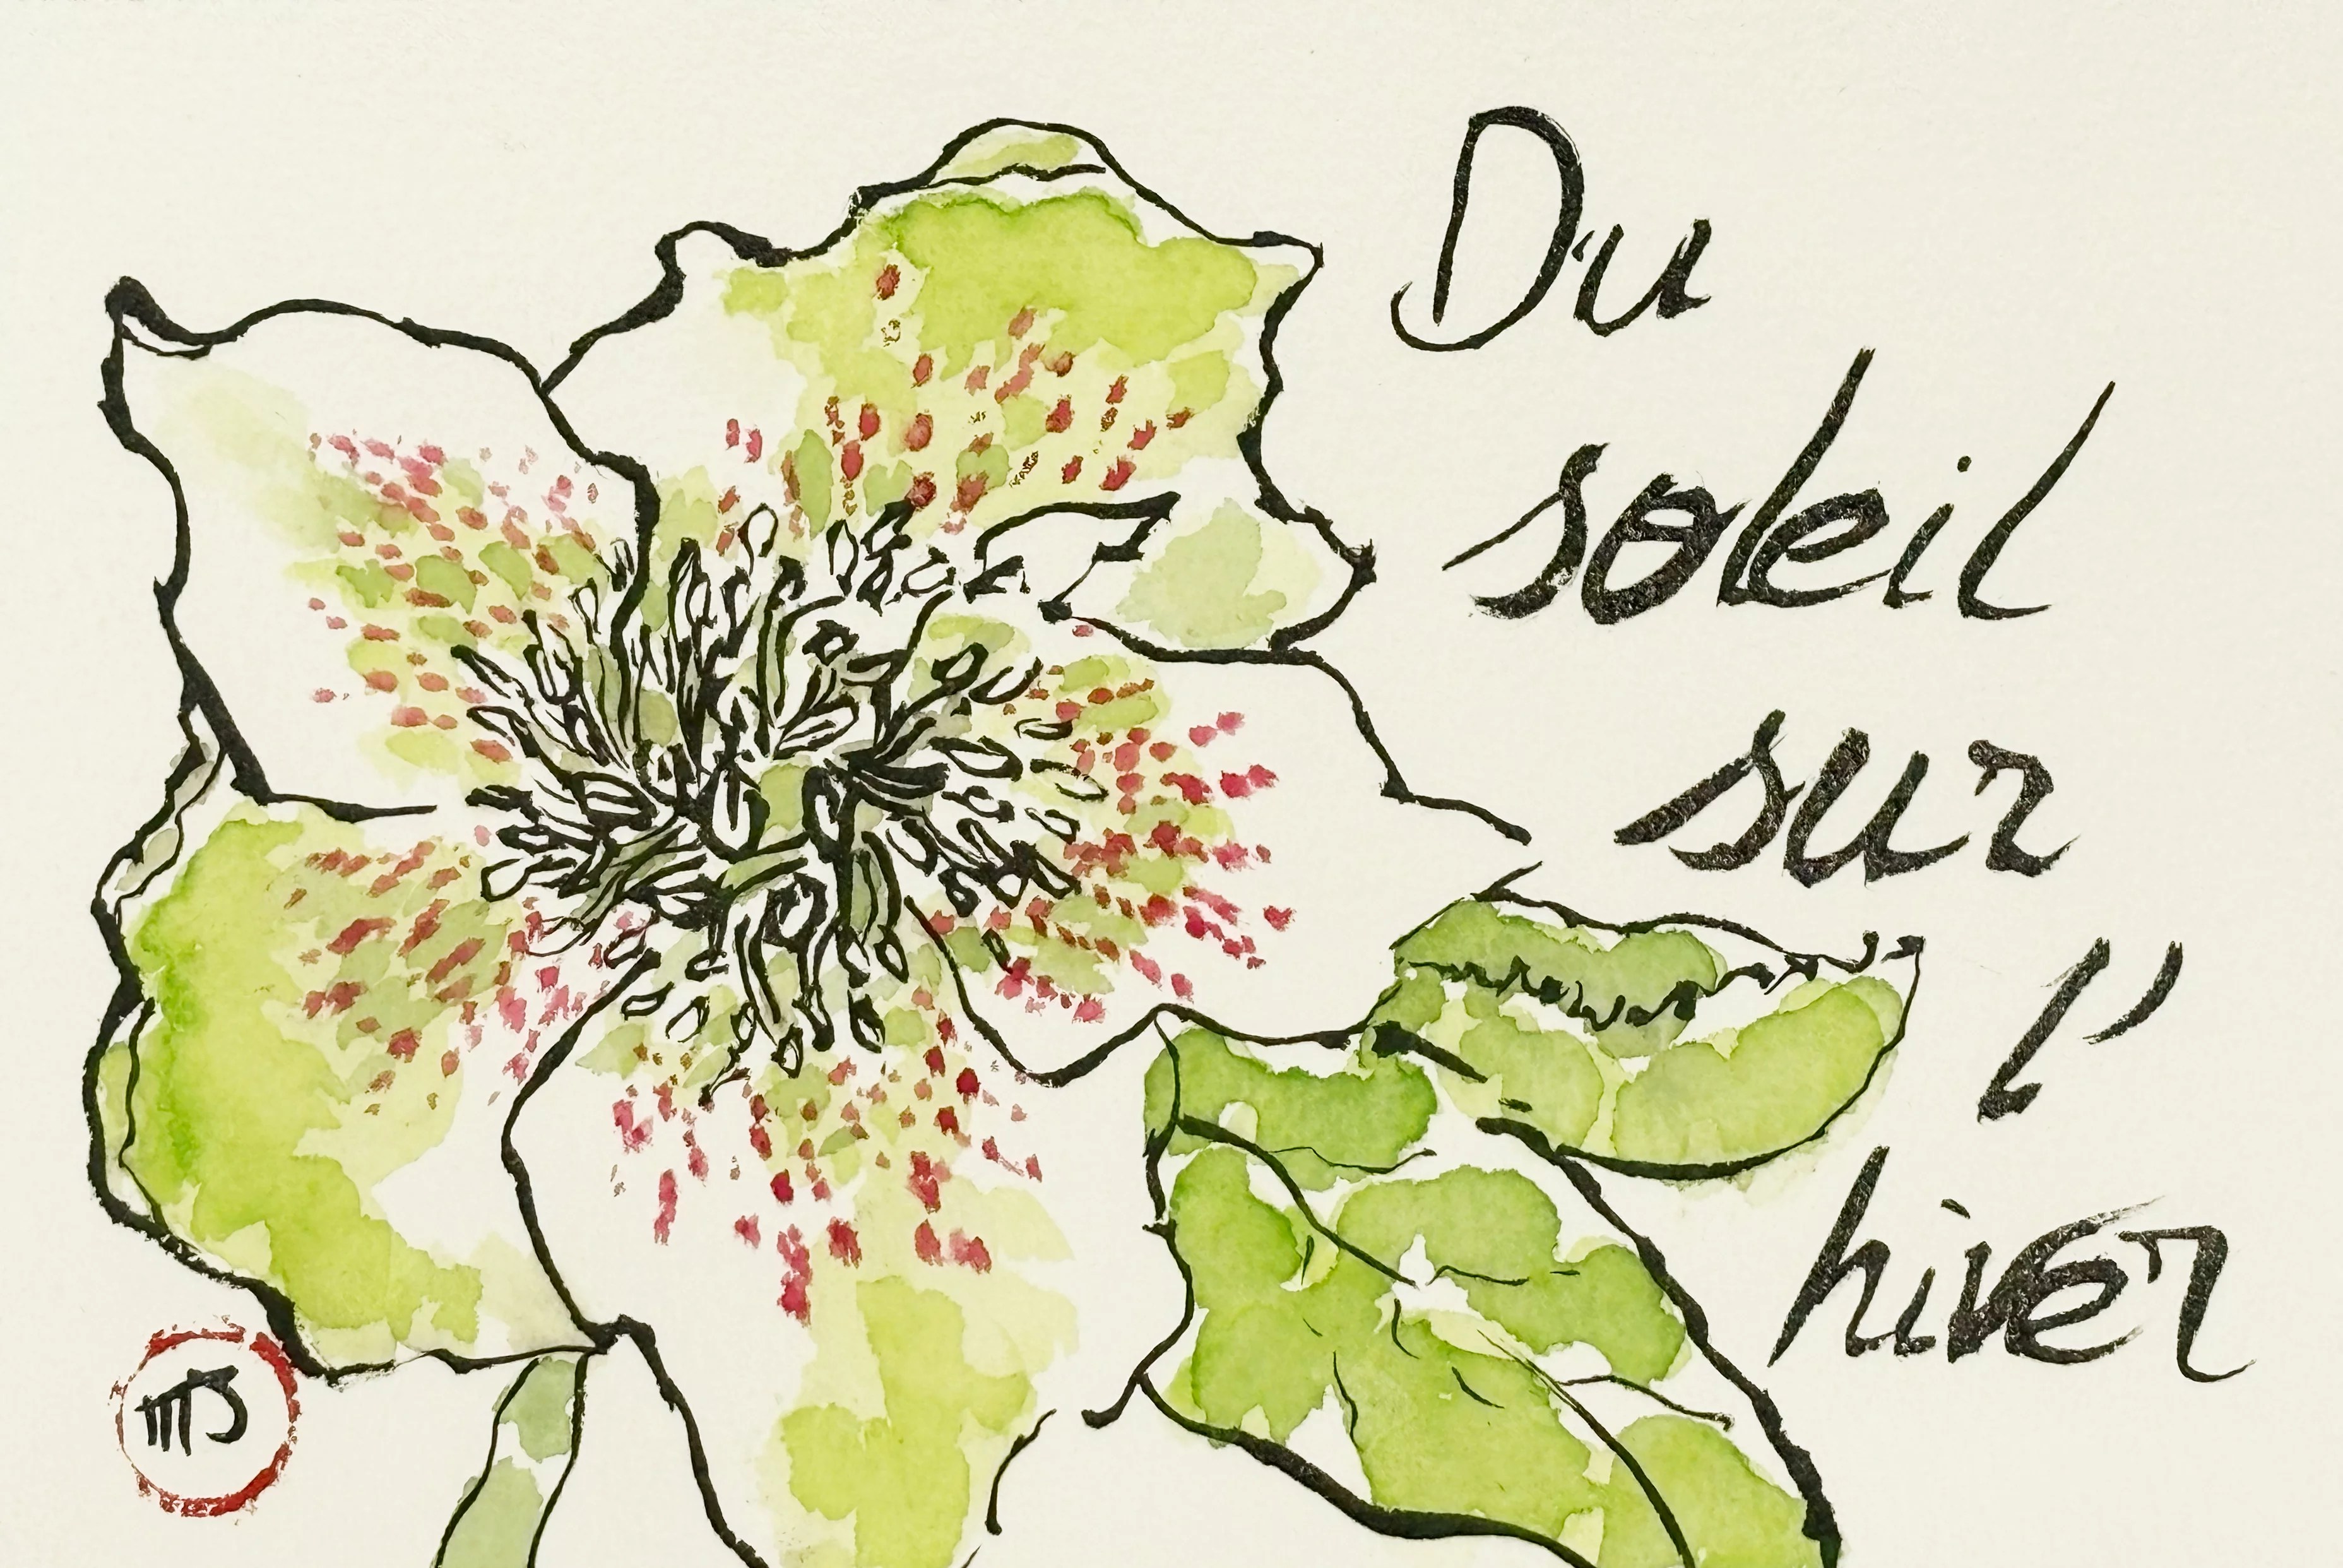 Du
soleil
sur
l'
hiver